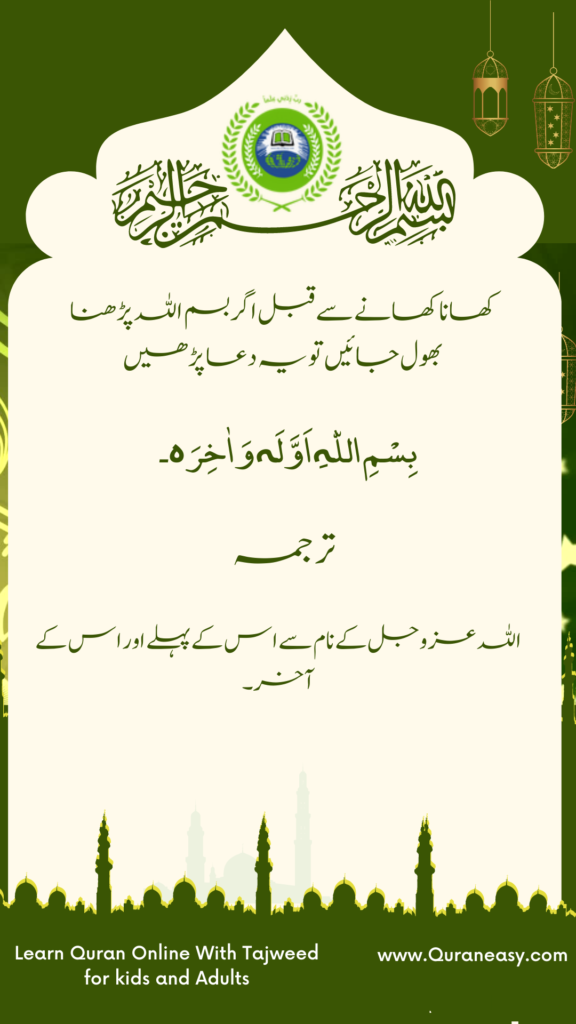 رب زدني علما
بسم الله الرحمن الرحيم
کھانا کھانے سے قبل اگر بسم اللہ پڑھنا
بھول جائیں تو یہ دعا پڑھیں
بِسْمِ اللّٰہِ اَوَّلَہ وَ اٰخِرَہ۔
ترجمہ
اللہ عزوجل کے نام سے اس کے پہلے اور اس کے
آخر۔
Learn Quran Online With Tajweed
for kids and Adults
www.Quraneasy.com